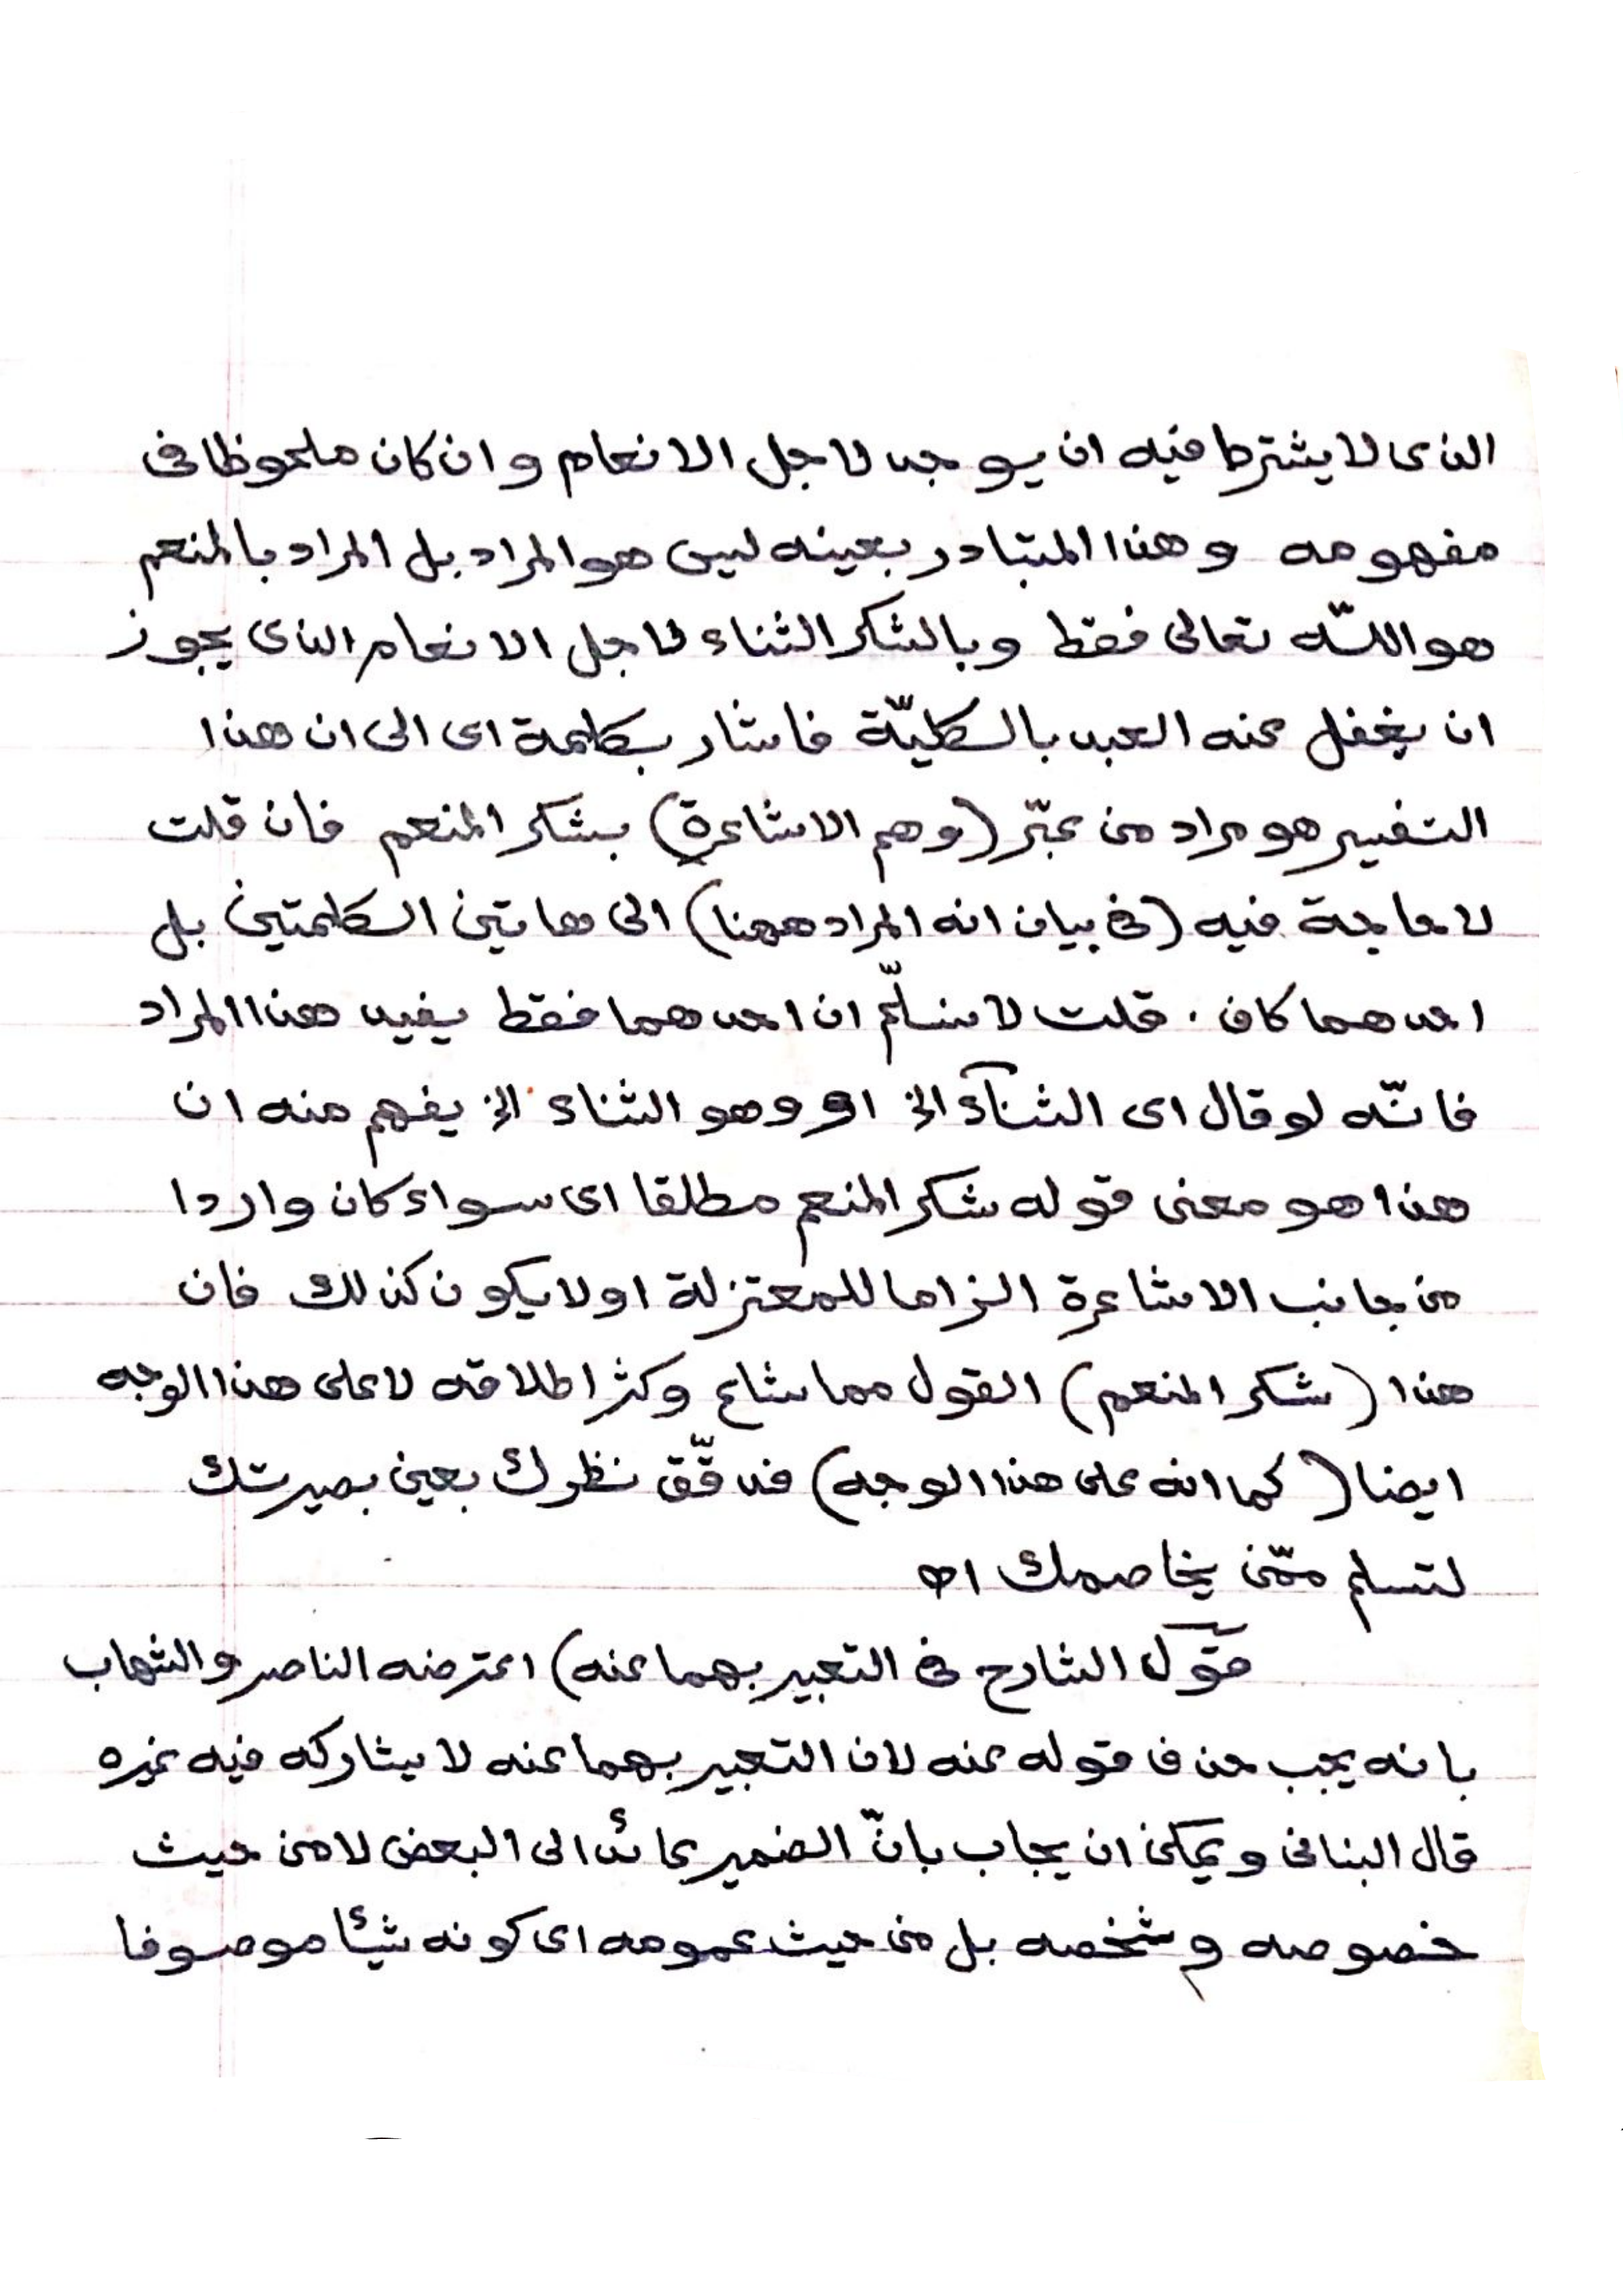 الذى لا يشترط فيه ان يوجد لاجل الانعام وان كان ملحوظا فى
مفهومه وهذا المتبادر بعينه ليس هو المراد بل المراد بالمنعم
هو اللّه تعالى فقط وبالشكر الثناء لاجل الانعام الذى يجوز
ان يغفل عنه العبد بالكليّة فاشار بكلمة اى الى ان هذا
التفسير هو مراد من عبّر (وهم الاشاعرة) بشكر المنعم فان قلت
لا حاجة فيه (فى بيان انه المراد ههنا) الى هاتين الكلمتين بل
احدهما كاف . قلت لا نسلّم ان احدهما فقط يفيد هذا المراد
فانّه لو قال اى الثنآء الخ او وهو الثناء الخ يفهم منه ان
هذا هو معنى قوله شكر المنعم مطلقا اى سواء كان واردا
من جانب الاشاعرة الزاما للمعتزلة او لا يكون كذلك فان
هذا (شكر المنعم) القول مما شاع وكثر اطلاقه لا على هذا الوجه
ايضا (كما انه على هذا الوجه) فدقّق نظرك بعين بصيرتك
لتسلم ممّن يخاصمك اه
قول الشارح فى التعبير بهما عنه) اعترضه الناصر والشهاب
بانه يجب حذف قوله عنه لان التعبير بهما عنه لا يشاركه فيه غيره
قال البنانى ويمكن ان يجاب بانّ الضمير عائد الى البعض لا من حيث
خصوصه وشخصه بل من حيث عمومه اى كونه شيئا موصوفا